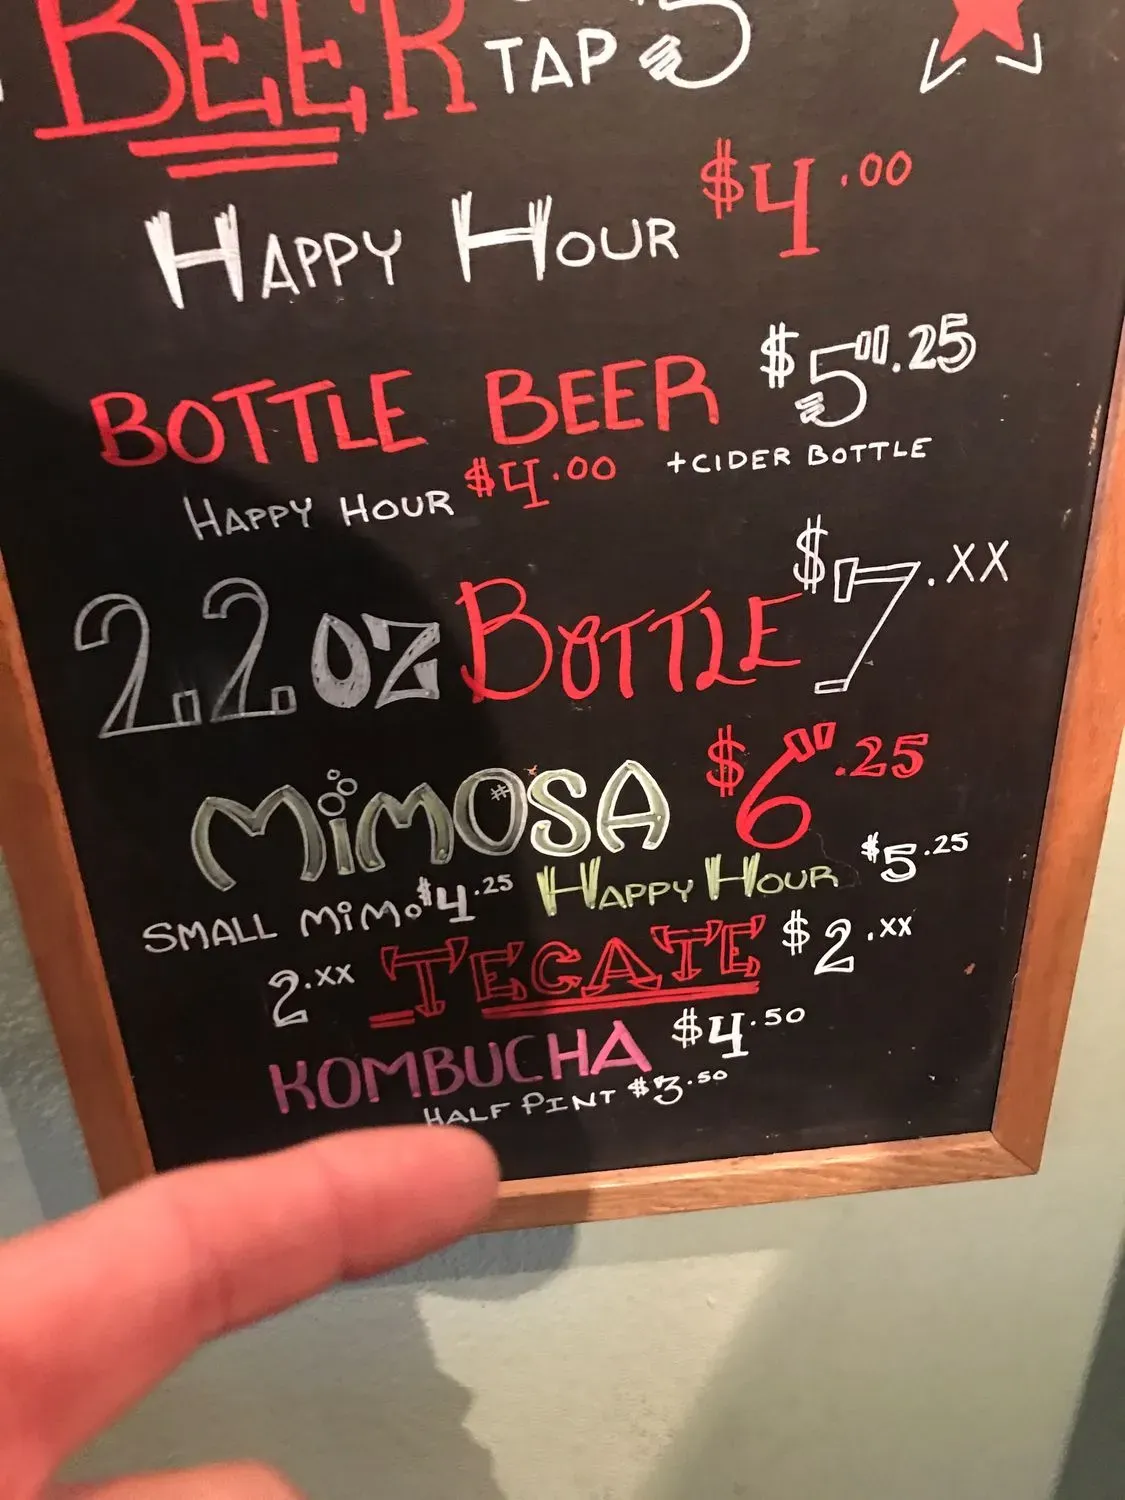 BEER TAP $5
HAPPY HOUR $4.00
BOTTLE BEER $5.25
+CIDER BOTTLE
HAPPY HOUR $4.00
22oz BOTTLE $7.XX
MiMOSA $6.25
SMALL MiMO $4.25 HAPPY HOUR $5.25
2.XX TECATE $2.XX
KOMBUCHA $4.50
HALF PINT $3.50